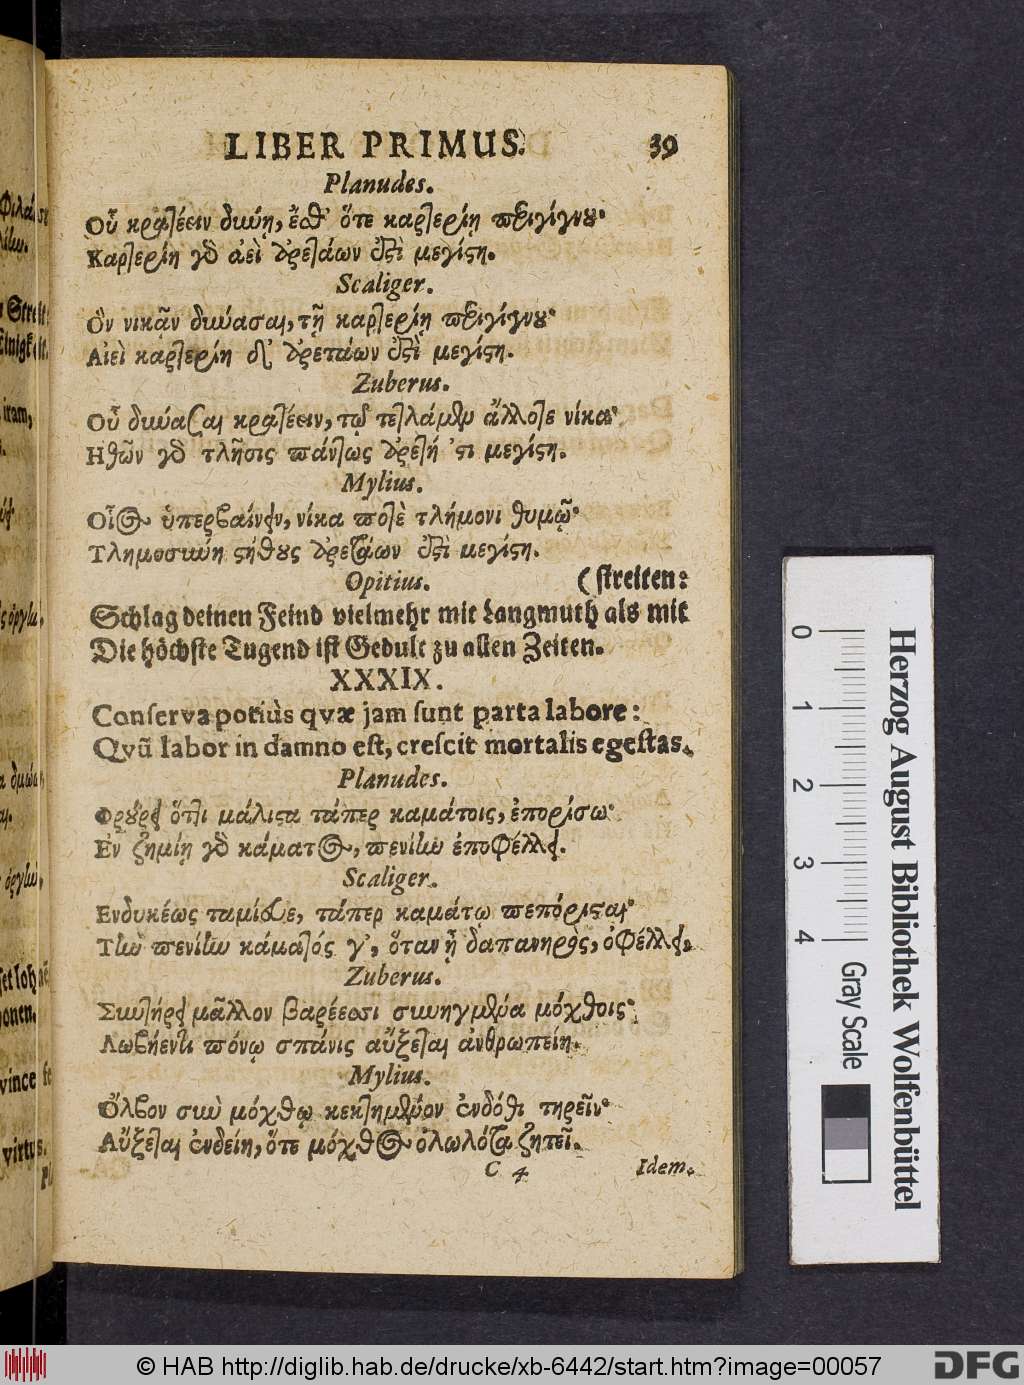 LIBER PRIMUS. 39
Planudes.
Οὗ κρατέειν δύνῃ, ἔσθ' ὅτε καρτερίῃ περιγίγνου·
Καρτερίη γὸ ἀεὶ ἀρετάων ἐστὶ μεγίστη.
Scaliger.
Ὃν νικᾷν δύνασαι, τῇ καρτερίῃ περιγίγνου·
Αἰεὶ καρτερίη δ' ἀρετάων ἐστὶ μεγίστη.
Zuberus.
Οὗ δύνασαι κρατέειν, τῷ τετλάμεν ἄλλοτε νίκα·
Ηθῶν γὸ τλῆσις πάντως ἀρετή 'στι μεγίστη.
Mylius.
Οἷος ὑπερβαίνειν, νίκα ποτὲ τλήμονι θυμῷ·
Τλημοσύνη στήθους ἀρετάων ἐστὶ μεγίστη.
Opitius. (streiten:
Schlag deinen Feind vielmehr mit Langmuth als mit
Die höchste Tugend ist Gedult zu allen Zeiten.
XXXIX.
Conserva potiùs qvæ jam sunt parta labore:
Qvũ labor in damno est, crescit mortalis egestas.
Planudes.
Φρούρει ὅττι μάλιστα τάπερ καμάτοις, ἐπορίσω·
Ἐν ζημίῃ γὸ κάματος, πενίην ἐποφέλλει.
Scaliger.
Ενδυκέως ταμίευε, τάπερ καμάτῳ πεπόρισται·
Τὴν πενίην κάματός γ', ὅταν ᾖ δαπανηρὸς, ὀφέλλει.
Zuberus.
Συντήρει μᾶλλον βαρέεσσι συνηγμένα μόχθοις·
Λωβήεντι πόνῳ σπάνις αὔξεται ἀνθρωπείη.
Mylius.
Ὄλβον σὺν μόχθῳ κεκτημένον ἐνδόθι τηρεῖν·
Αὔξεται ἐνδείη, ὅτε μόχθος ὀλωλότα ζητεῖ.
C 4 Idem.
0 1 2 3 4 Gray Scale
Herzog August Bibliothek Wolfenbüttel
© HAB http://diglib.hab.de/drucke/xb-6442/start.htm?image=00057
DFG